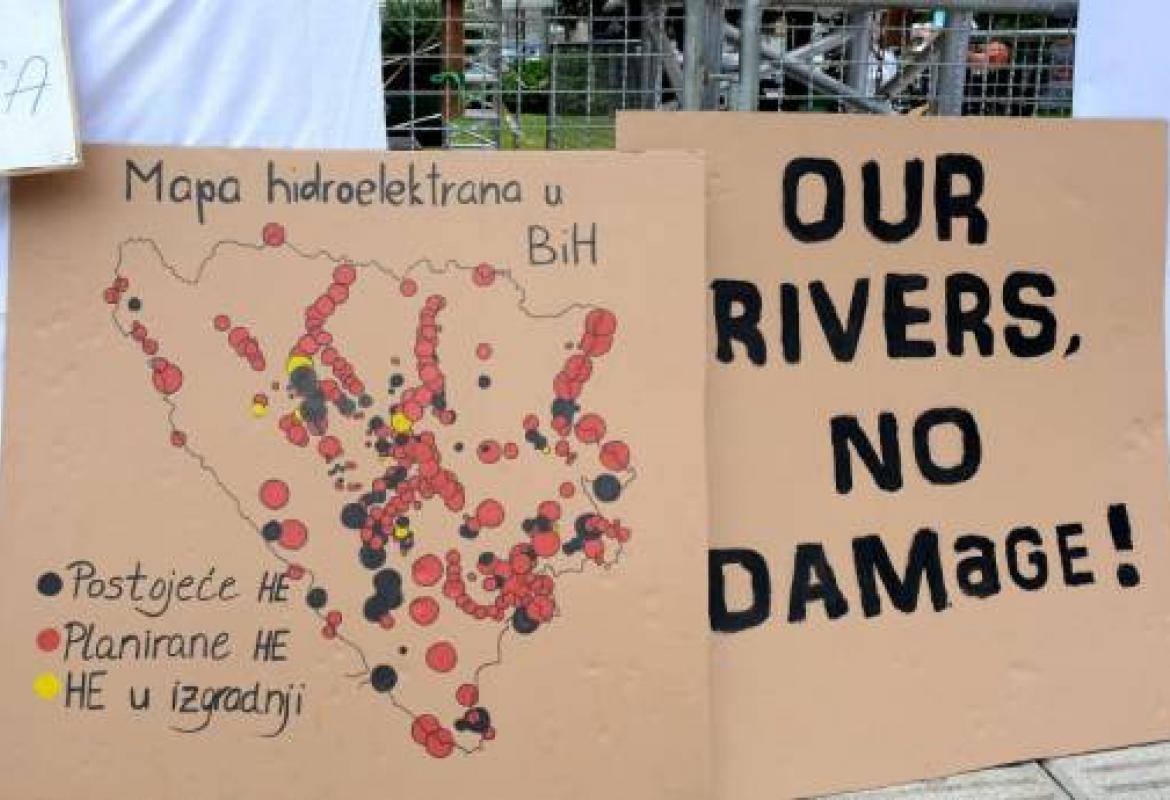 Mapa hidroelektrana u
BiH
Postojeće HE
Planirane HE
HE u izgradnji
OUR
RIVERS,
NO
DAMaGE!